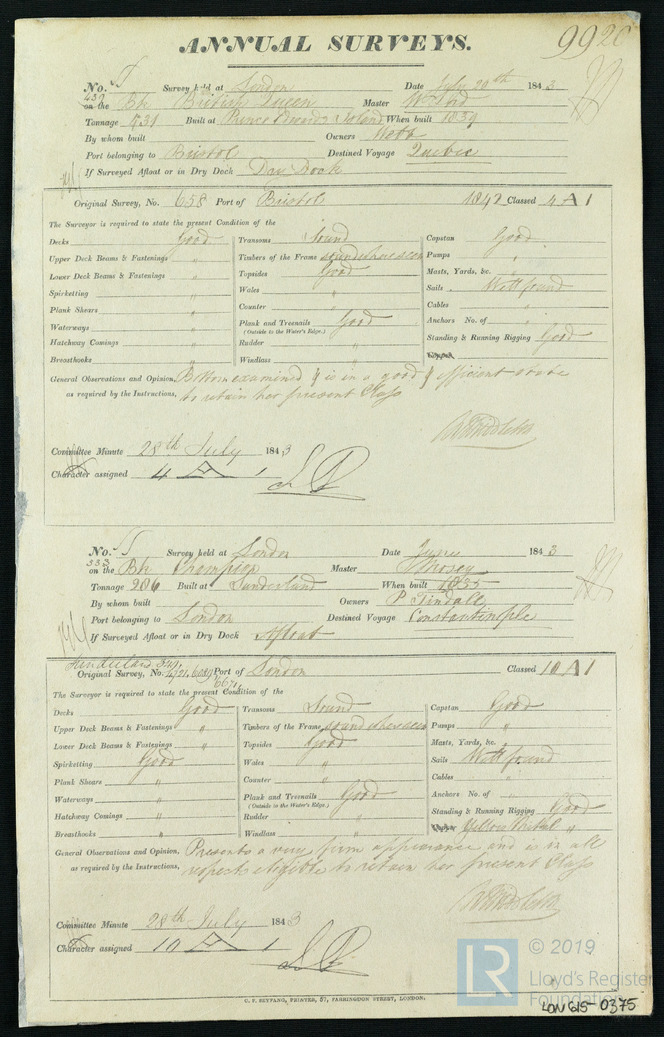 ANNUAL SURVEYS. 9920
No. Survey held at London Date July 20th 1843
439 on the Bk British Queen Master
Tonnage 731 Built at Prince Edwards Island When built 1839
By whom built Owners Webb
Port belonging to Bristol Destined Voyage Quebec
If Surveyed Afloat or in Dry Dock Dry Dock
Original Survey, No. 658 Port of Bristol 1842 Classed 4 A 1
The Surveyor is required to state the present Condition of the
Decks Good Transoms Sound Capstan Good
Upper Deck Beams & Fastenings " Timbers of the Frame sound where seen Pumps "
Lower Deck Beams & Fastenings " Topsides Good Masts, Yards, &c. "
Spirketting " Wales " Sails Well found
Plank Shears " Counter " Cables "
Waterways " Plank and Treenails Good Anchors No. of "
(Outside to the Water's Edge.)
Hatchway Comings " Rudder " Standing & Running Rigging Good
Breasthooks " Windlass "
General Observations and Opinion, Bottom examined & is in a good & efficient state
as required by the Instructions, to retain her present Class
Committee Minute 28th July 1843
Character assigned 4 A 1
No. Survey held at London Date June 1843
333 on the Bk Champion Master
Tonnage 206 Built at Sunderland When built 1835
By whom built Owners P Tindall
Port belonging to London Destined Voyage Constantinple
If Surveyed Afloat or in Dry Dock Afloat
Sunderland
Original Survey, No. Port of London Classed 10 A 1
The Surveyor is required to state the present Condition of the
Decks Good Transoms Sound Capstan Good
Upper Deck Beams & Fastenings " Timbers of the Frame sound where seen Pumps "
Lower Deck Beams & Fastenings " Topsides Good Masts, Yards, &c. "
Spirketting Good Wales " Sails Well found
Plank Shears " Counter " Cables "
Waterways " Plank and Treenails Good Anchors No. of "
(Outside to the Water's Edge.)
Hatchway Comings " Rudder " Standing & Running Rigging Good
Breasthooks " Windlass " Yellow Metal "
General Observations and Opinion, Presents a very firm appearance and is in all
as required by the Instructions, respects eligible to retain her present Class
Committee Minute 28th July 1843
Character assigned 10 A 1
C. F. SEYFANG, PRINTER, 57, FARRINGDON STREET, LONDON.
LR © 2019
Lloyd's Register
Foundation
LON 615-0375